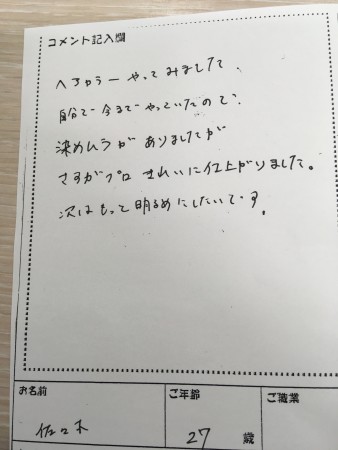 コメント記入欄
ヘナカラーやってみました。
自分で今までやっていたので、
染めムラがありましたが
さすがプロ きれいに仕上がりました。
次はもっと明るめにしたいです。
お名前
ご年齢
ご職業
佐々木
27 歳